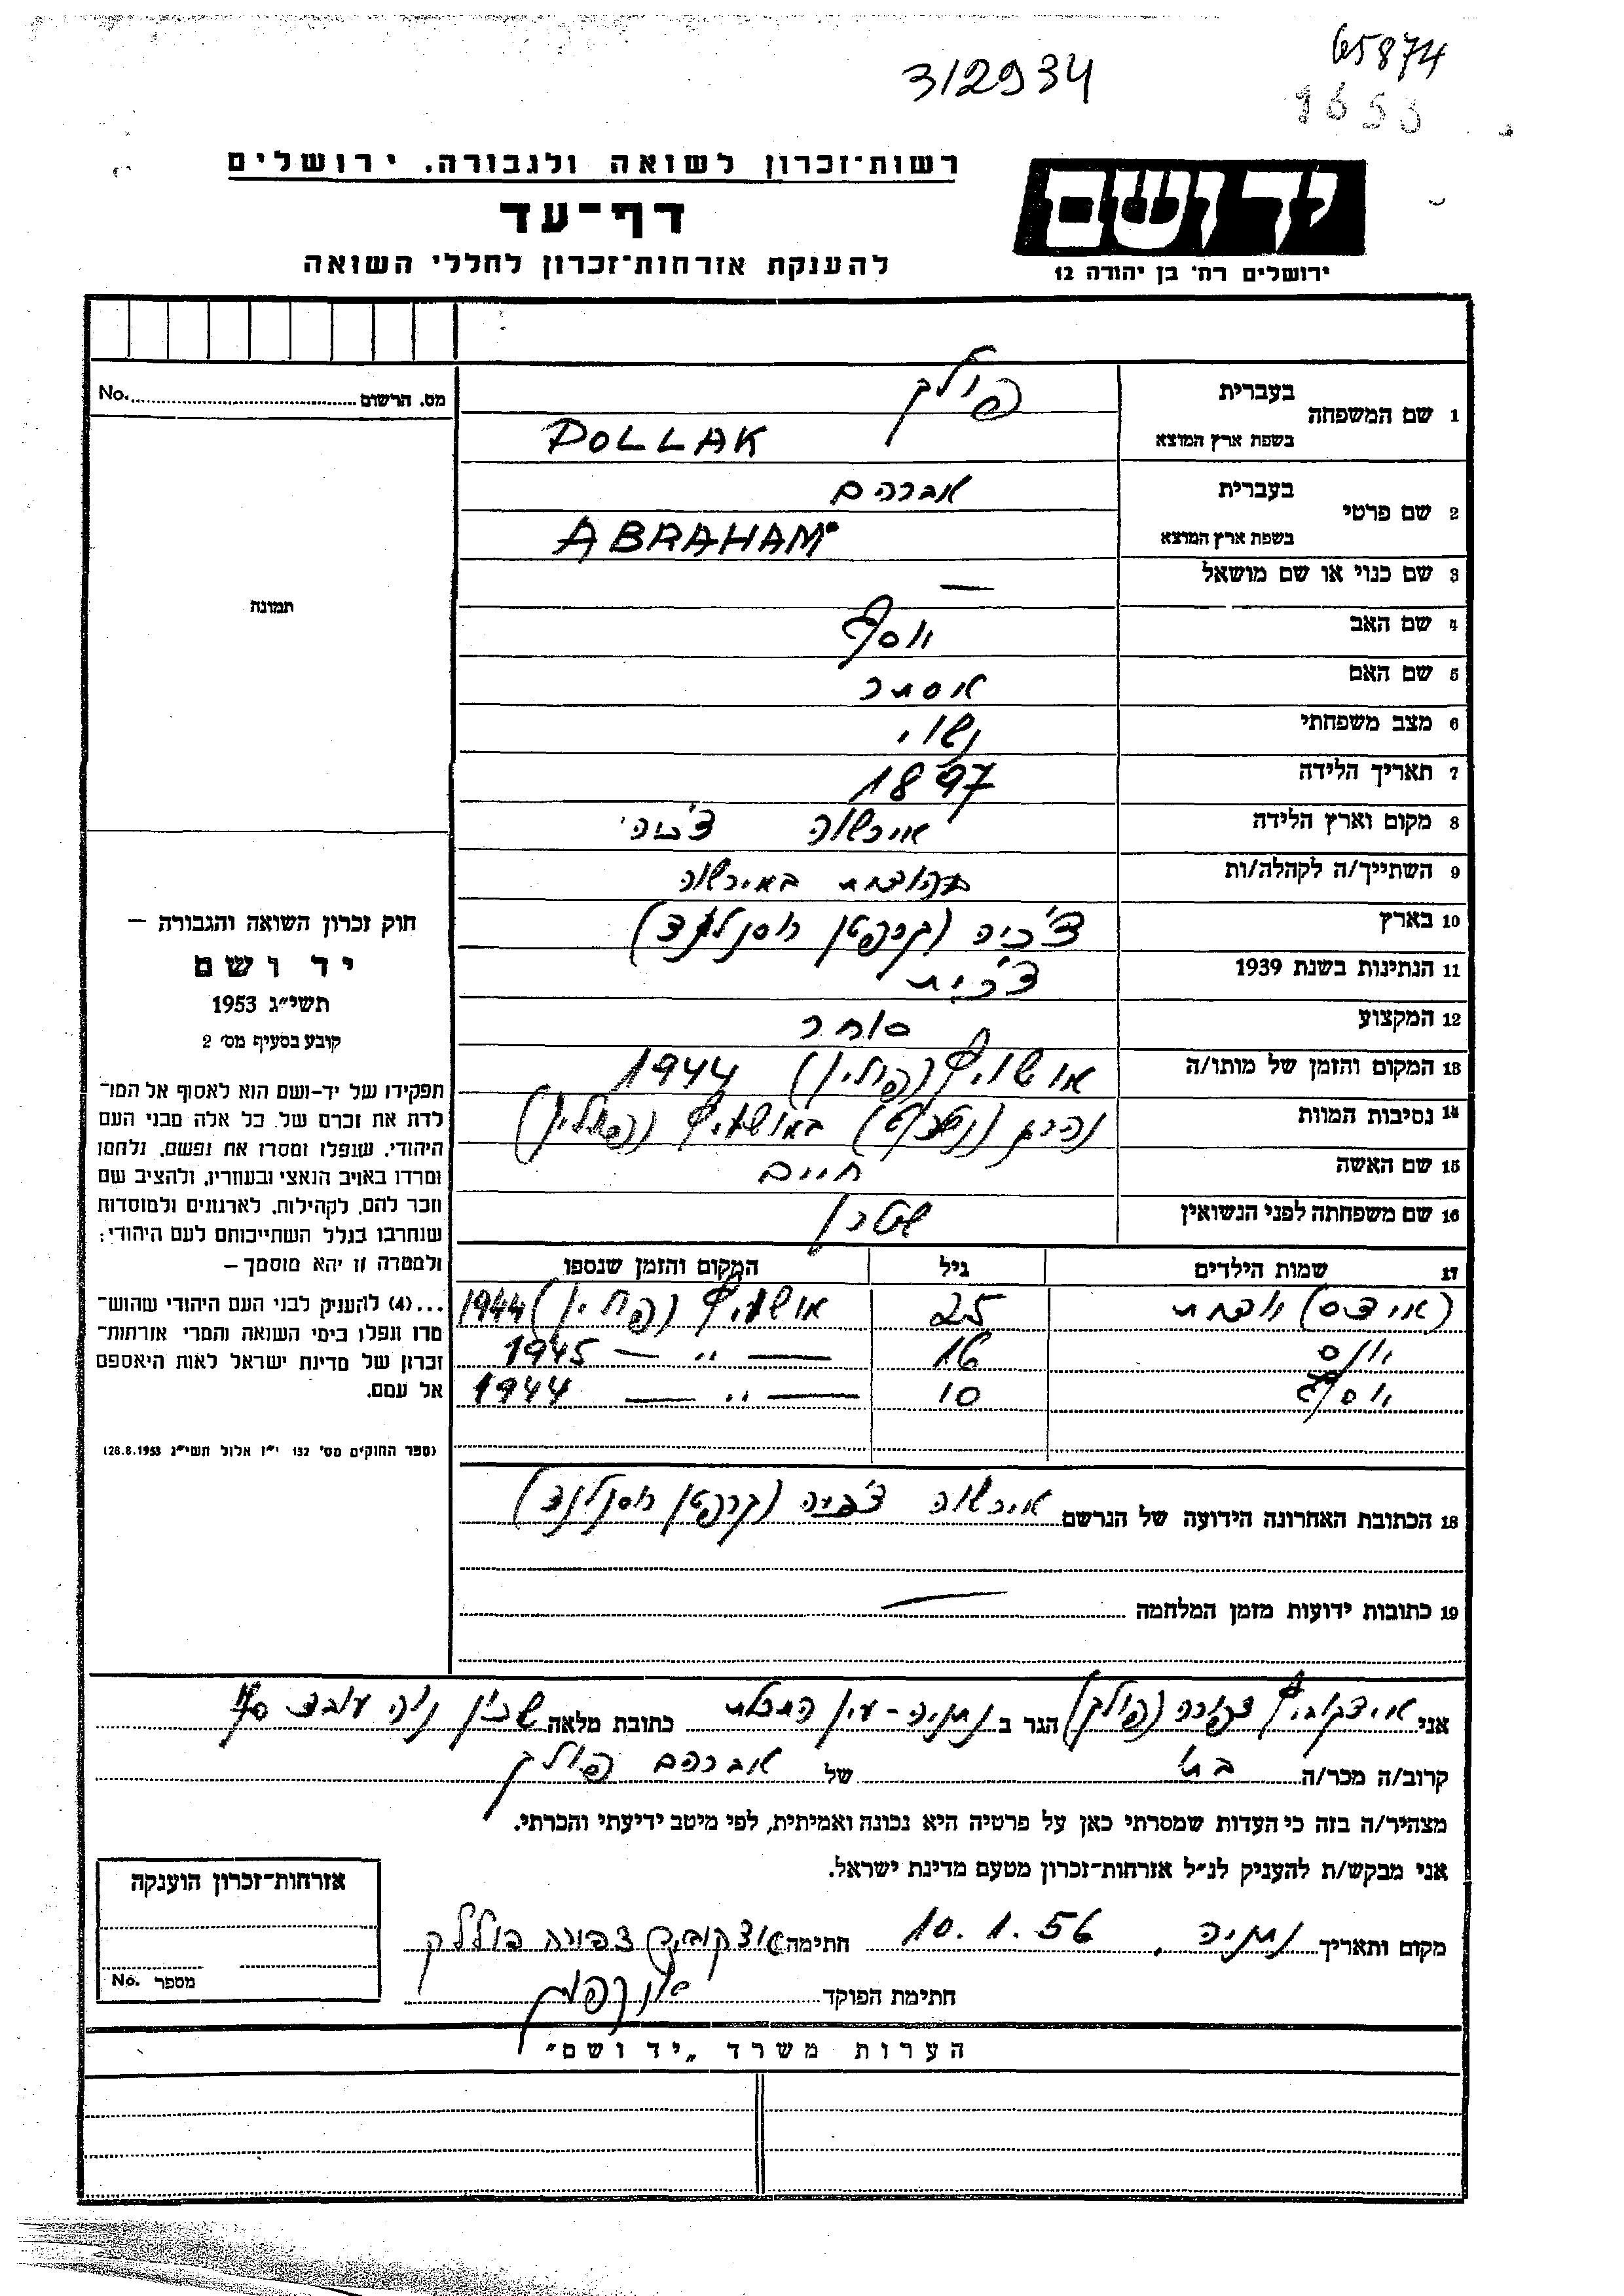 65874
312934
9653
רשות־זכרון לשואה ולגבורה. ירושלים
דף־עד
להענקת אזרחות־זכרון לחללי השואה
יד ושם
ירושלים רח׳ בן יהודה 12
מס. הרשום No.
תמונה
1 שם המשפחה בעברית פולק
בשפת ארץ המוצא POLLAK
2 שם פרטי בעברית אברהם
בשפת ארץ המוצא ABRAHAM
3 שם כנוי או שם מושאל —
4 שם האב יוסף
5 שם האם אסתר
6 מצב משפחתי נשוי
7 תאריך הלידה 1897
8 מקום וארץ הלידה אירשוה צ׳כיה
9 השתייך/ה לקהלה/ות באירשוה
10 בארץ צ׳כיה (קרפטן רוסנלנד)
11 הנתינות בשנת 1939 צ׳כית
12 המקצוע סוחר
13 המקום והזמן של מותו/ה אושויץ (פולין) 1944
14 נסיבות המוות נהרג באושויץ (פולין)
15 שם האשה חיים
16 שם משפחתה לפני הנשואין שטרן
17 שמות הילדים גיל המקום והזמן שנספו
25 אושויץ (פולין) 1944
16 — ״ — 1945
יוסף 10 — ״ — 1944
18 הכתובת האחרונה הידועה של הנרשם אירשוה צ׳כיה (קרפטן רוסנלנד)
19 כתובות ידועות מזמן המלחמה —
חוק זכרון השואה והגבורה —
יד ושם
תשי״ג 1953
קובע בסעיף מס׳ 2
תפקידו של יד־ושם הוא לאסוף אל המו־
לדת את זכרם של כל אלה מבני העם
היהודי, שנפלו ומסרו את נפשם, נלחמו
ומרדו באויב הנאצי ובעוזריו, ולהציב שם
וזכר להם, לקהילות, לארגונים ולמוסדות
שנחרבו בגלל השתייכותם לעם היהודי;
ולמטרה זו יהא מוסמך —
...(4) להעניק לבני העם היהודי שהוש־
מדו ונפלו בימי השואה והמרי אזרחות־
זכרון של מדינת ישראל לאות היאספם
אל עמם.
(ספר החוקים מס׳ 132 י״ז אלול תשי״ג 28.8.1953)
אני איצקוביץ צפורה (פולק) הגר ב נתניה - עין התכלת כתובת מלאה שכון נוה עובד
קרוב/ה מכר/ה בת של אברהם פולק
מצהיר/ה בזה כי העדות שמסרתי כאן על פרטיה היא נכונה ואמיתית, לפי מיטב ידיעתי והכרתי.
אני מבקש/ת להעניק לנ״ל אזרחות־זכרון מטעם מדינת ישראל.
מקום ותאריך נתניה, 10.1.56 חתימה איצקוביץ צפורה פוללק
חתימת הפוקד
אזרחות־זכרון הוענקה
מספר No.
הערות משרד „יד ושם״